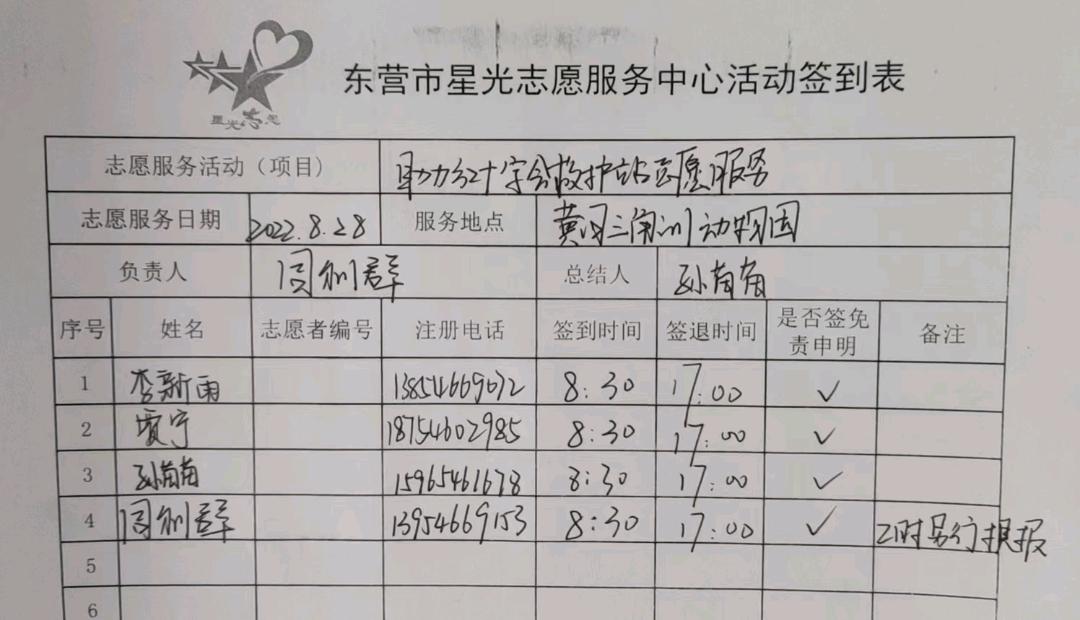 星光志愿
东营市星光志愿服务中心活动签到表
志愿服务活动（项目） 助力红十字会救护站志愿服务
志愿服务日期 2022.8.28 服务地点 黄河三角洲动物园
负责人 周利群 总结人 孙苗苗
序号 姓名 志愿者编号 注册电话 签到时间 签退时间 是否签免责申明 备注
1 李新雨 13854669072 8:30 17:00 ✓
2 贾宁 18754602985 8:30 17:00 ✓
3 孙苗苗 15965461678 8:30 17:00 ✓
4 周利群 13954669153 8:30 17:00 ✓ 工时另行提报
5
6